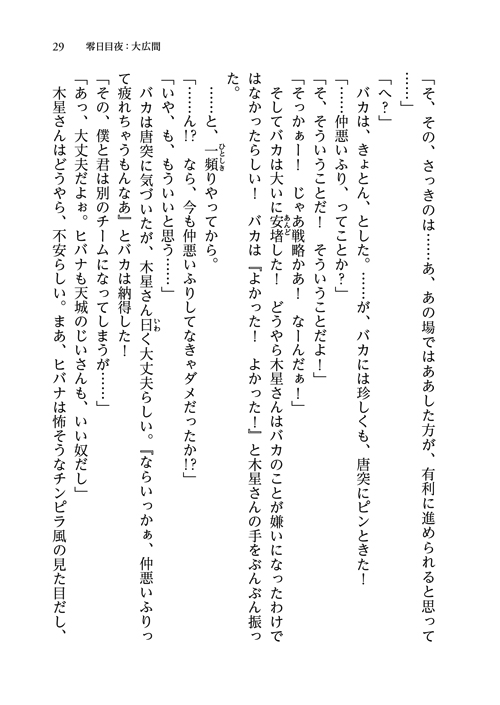 29　零日目夜：大広間
「そ、その、さっきのは……あ、あの場ではああした方が、有利に進められると思って
……」
「へ？」
　バカは、きょとん、とした。……が、バカには珍しくも、唐突にピンときた！
「……仲悪いふり、ってことか？」
「そ、そういうことだ！　そういうことだよ！」
「そっかぁー！　じゃあ戦略かあ！　なーんだぁ！」
　そしてバカは大いに安堵した！　どうやら木星さんはバカのことが嫌いになったわけで
はなかったらしい！　バカは『よかった！　よかった！』と木星さんの手をぶんぶん振っ
た。
　……と、一頻りやってから。
「……ん!?　なら、今も仲悪いふりしてなきゃダメだったか!?」
「いや、も、もういいと思う……」
　バカは唐突に気づいたが、木星さん曰く大丈夫らしい。『ならいっかぁ、仲悪いふりっ
て疲れちゃうもんなあ』とバカは納得した！
「その、僕と君は別のチームになってしまうが……」
「あっ、大丈夫だよぉ。ヒバナも天城のじいさんも、いい奴だし」
　木星さんはどうやら、不安らしい。まあ、ヒバナは怖そうなチンピラ風の見た目だし、